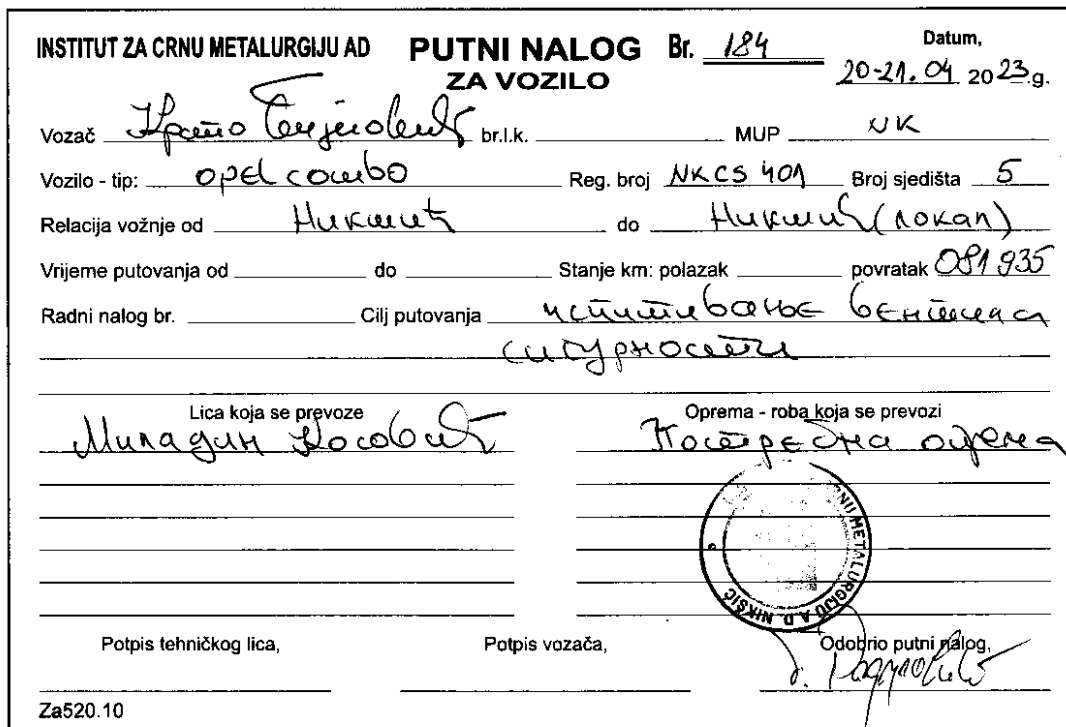 INSTITUT ZA CRNU METALURGIJU AD PUTNI NALOG Br. 184 Datum,
ZA VOZILO 20-21.04 2023.g.
Vozač br.l.k. MUP NK
Vozilo - tip: opel combo Reg. broj NKCS 401 Broj sjedišta 5
Relacija vožnje od Никшић do Никшић (локал)
Vrijeme putovanja od do Stanje km: polazak povratak 081935
Radni nalog br. Cilj putovanja испитивање вентила
сигурности
Lica koja se prevoze Oprema - roba koja se prevozi
Миладин Косовић Потребна опрема
CRNU METALURGIJU A.D. NIKŠIĆ
Potpis tehničkog lica, Potpis vozača, Odobrio putni nalog,
Za520.10